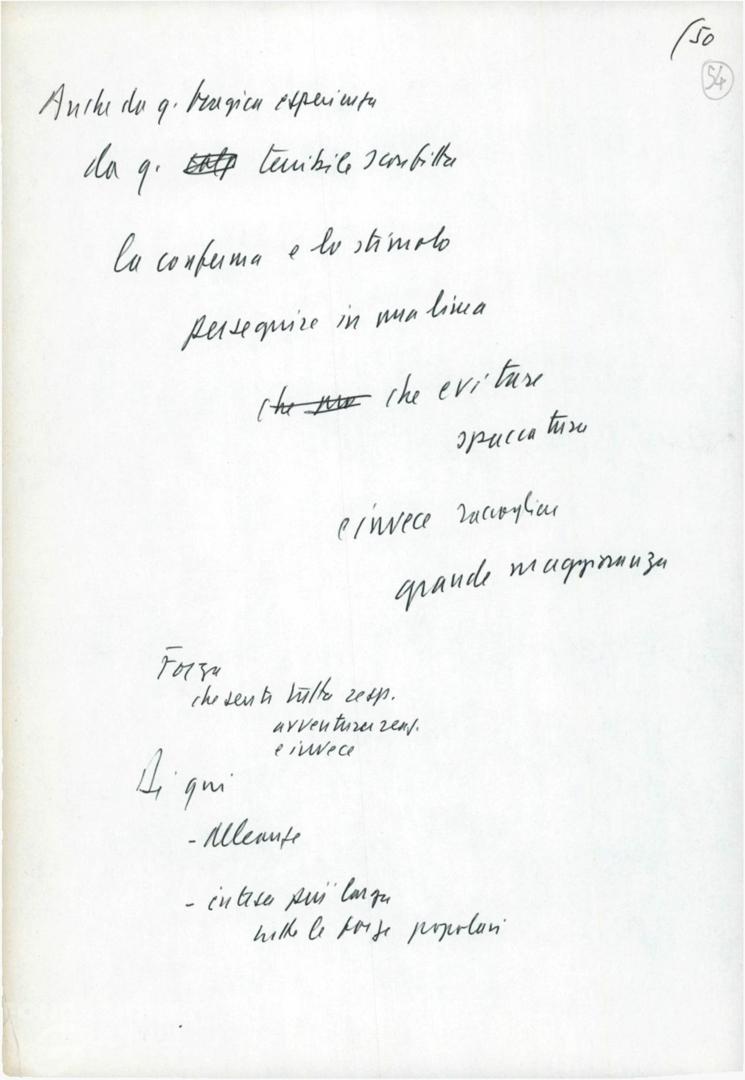 /50
54
Anche da q. tragica esperienza
da q. terribile sconfitta
la conferma e lo stimolo
perseguire in una linea
che evitare
spaccatura
e invece raccogliere
grande maggioranza
Forza
che senta tutta resp.
avventura reaz.
e invece
Di qui
- Alleanze
- intesa più larga
tutte le forze popolari